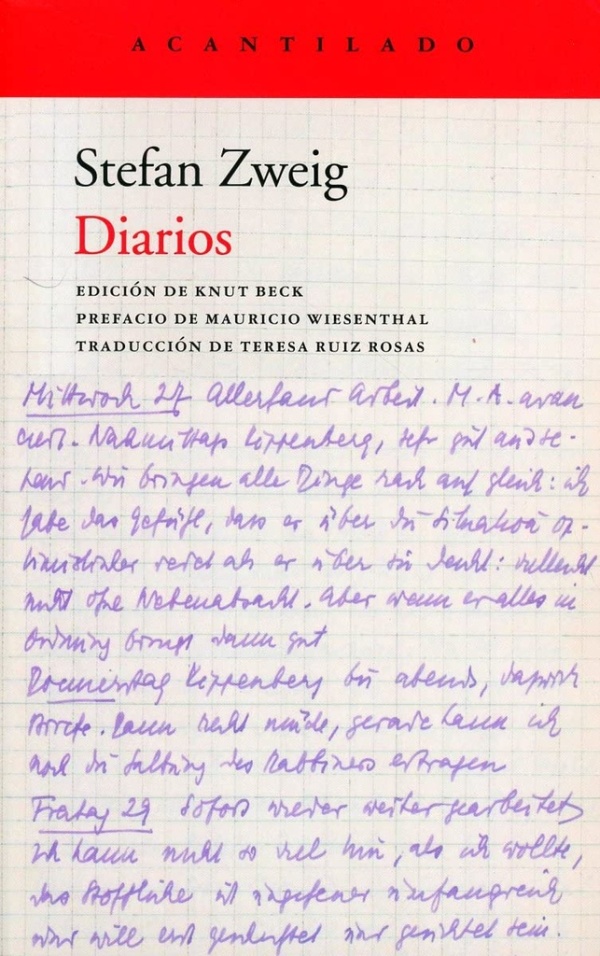 ACANTILADO
Stefan Zweig
Diarios
EDICIÓN DE KNUT BECK
PREFACIO DE MAURICIO WIESENTHAL
TRADUCCIÓN DE TERESA RUIZ ROSAS
Mittwoch 27 Allerhand Arbeit. M. A. avan
ciert. Nachmittags Kippenberg, sehr gut
Wir bringen alle Dinge rasch auf gleich: ich
habe das Gefühl, dass er über die Situation op-
timistischer redet als er über sie denkt: vielleicht
nicht ohne Nebenabsicht. Aber wenn er alles in
Ordnung bringt dann gut
Donnerstag Kippenberg bis abends, dazwisch
Briefe. Dann recht müde, gerade kann ich
noch die des Rabbiners ertragen
Freitag 29 Sofort wieder weitergearbeitet
Ich kann nicht so viel tun, als ich wollte,
das Stoffliche ist ungeheuer umfangreich
und will erst gesichtet und gerichtet sein.